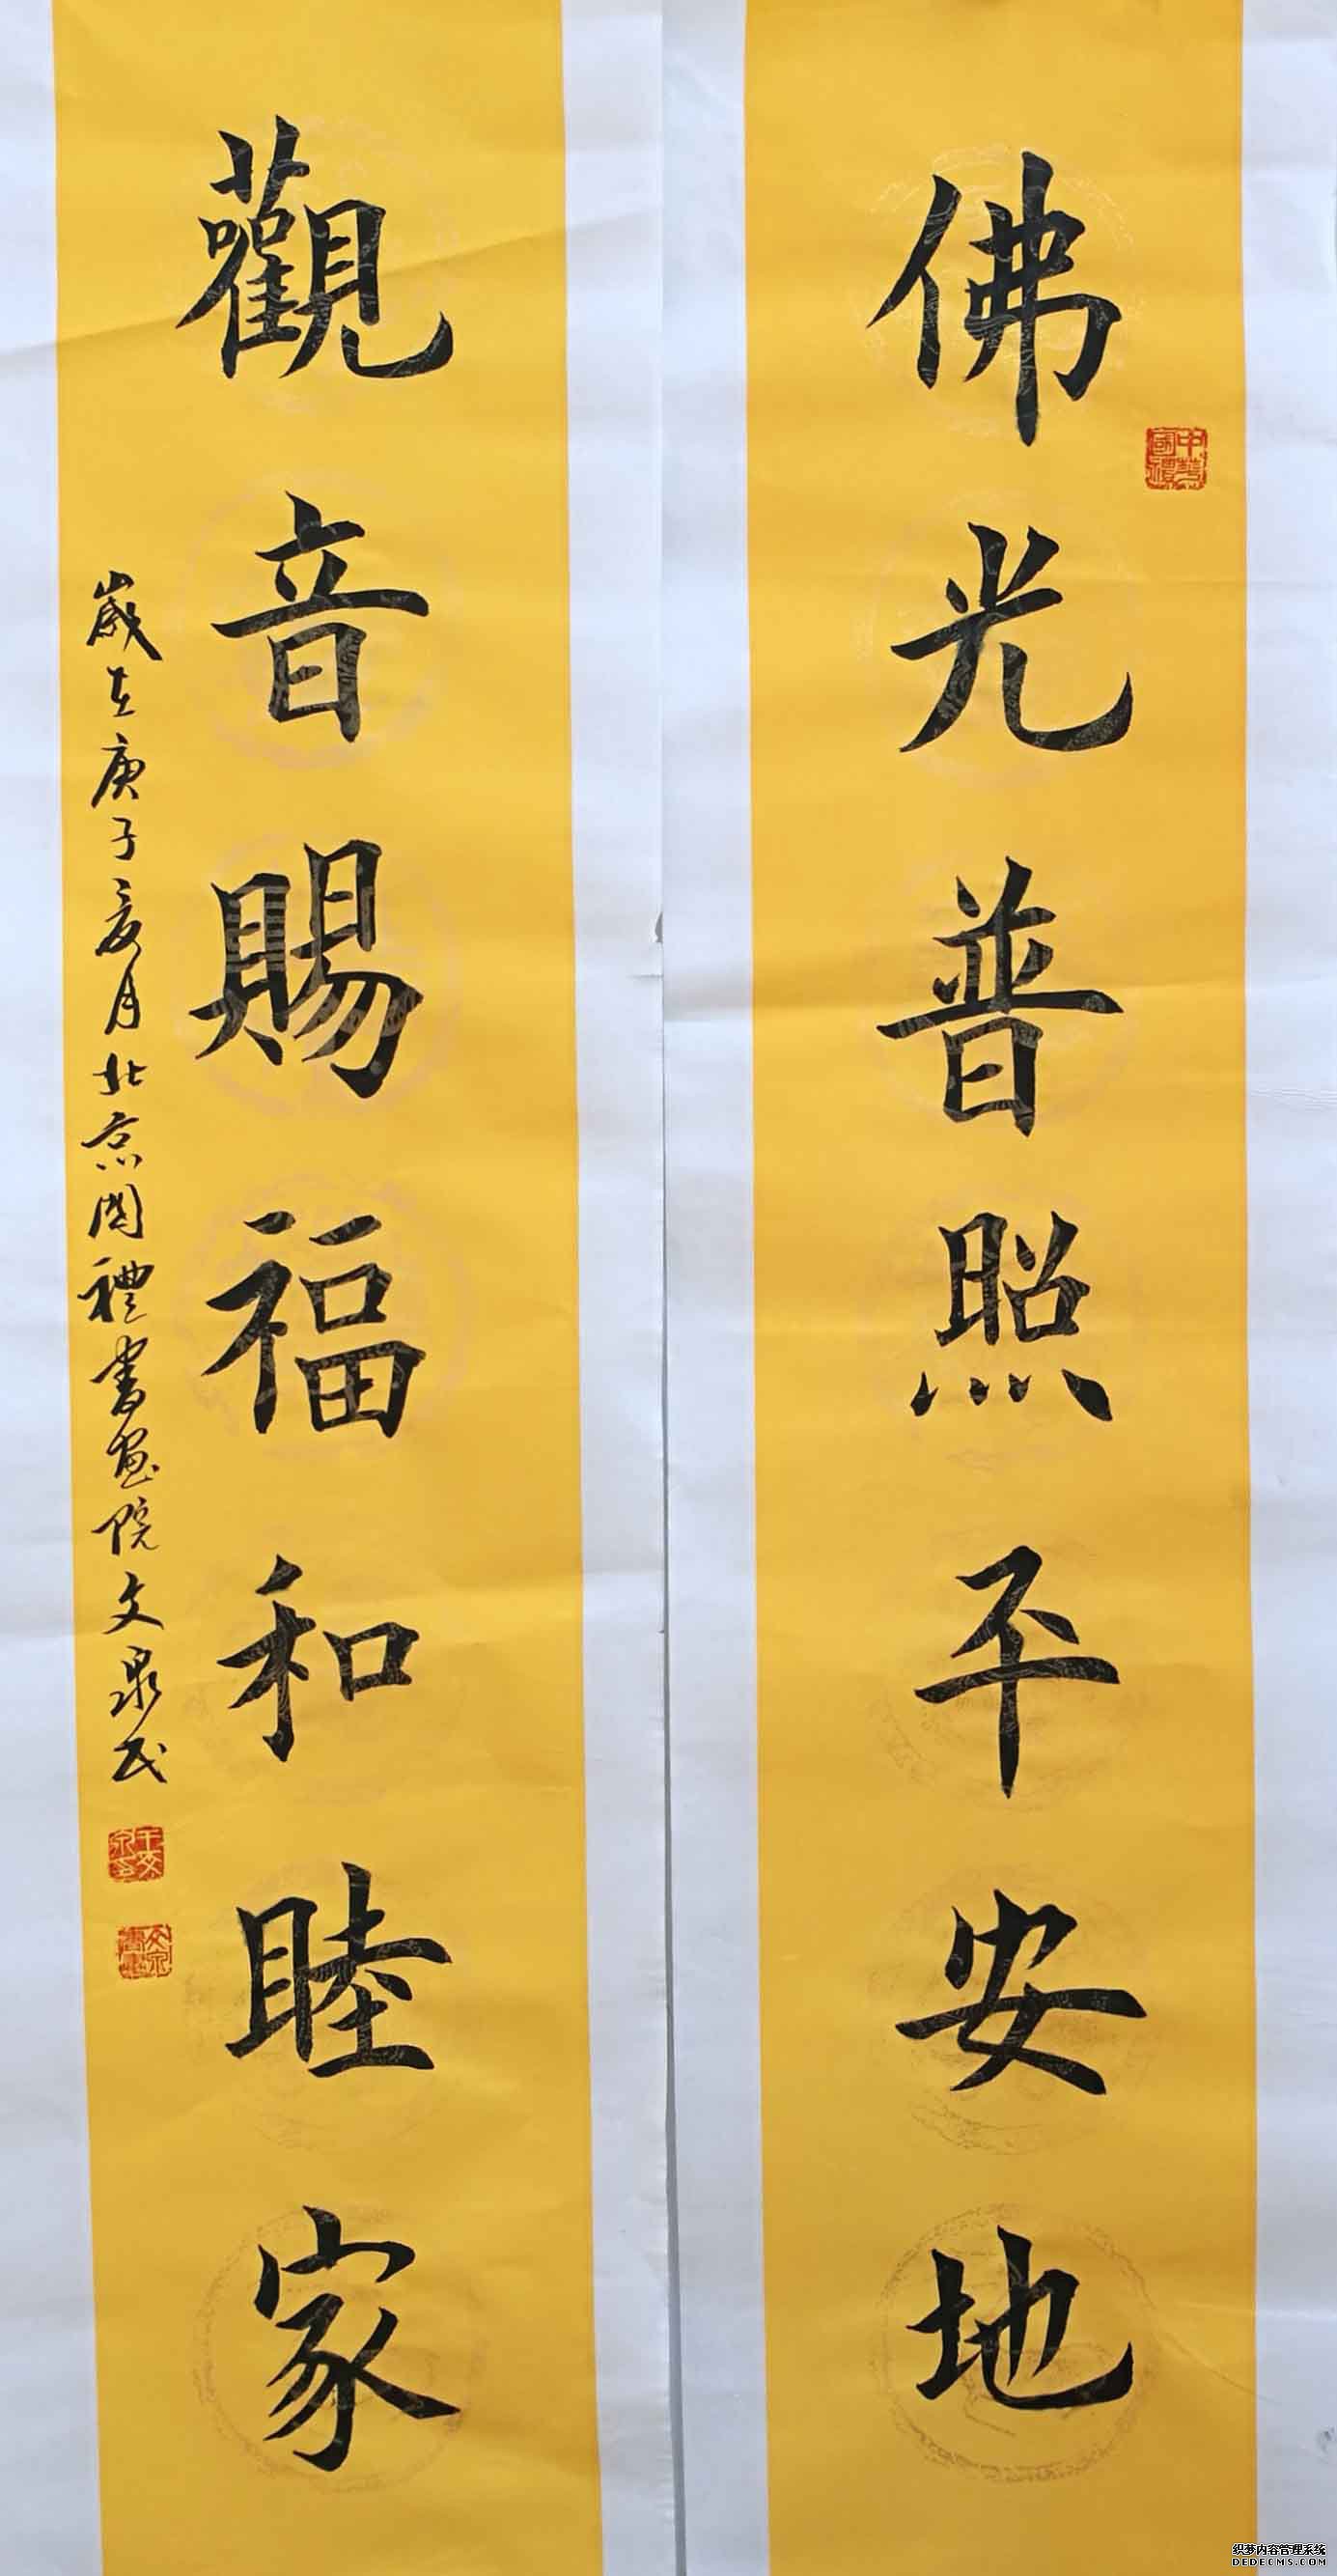 佛光普照平安地
中華國禮
觀音賜福和睦家
歲在庚子夏月北京國禮書畫院文泉民
织梦内容管理系统
DEDECMS.COM